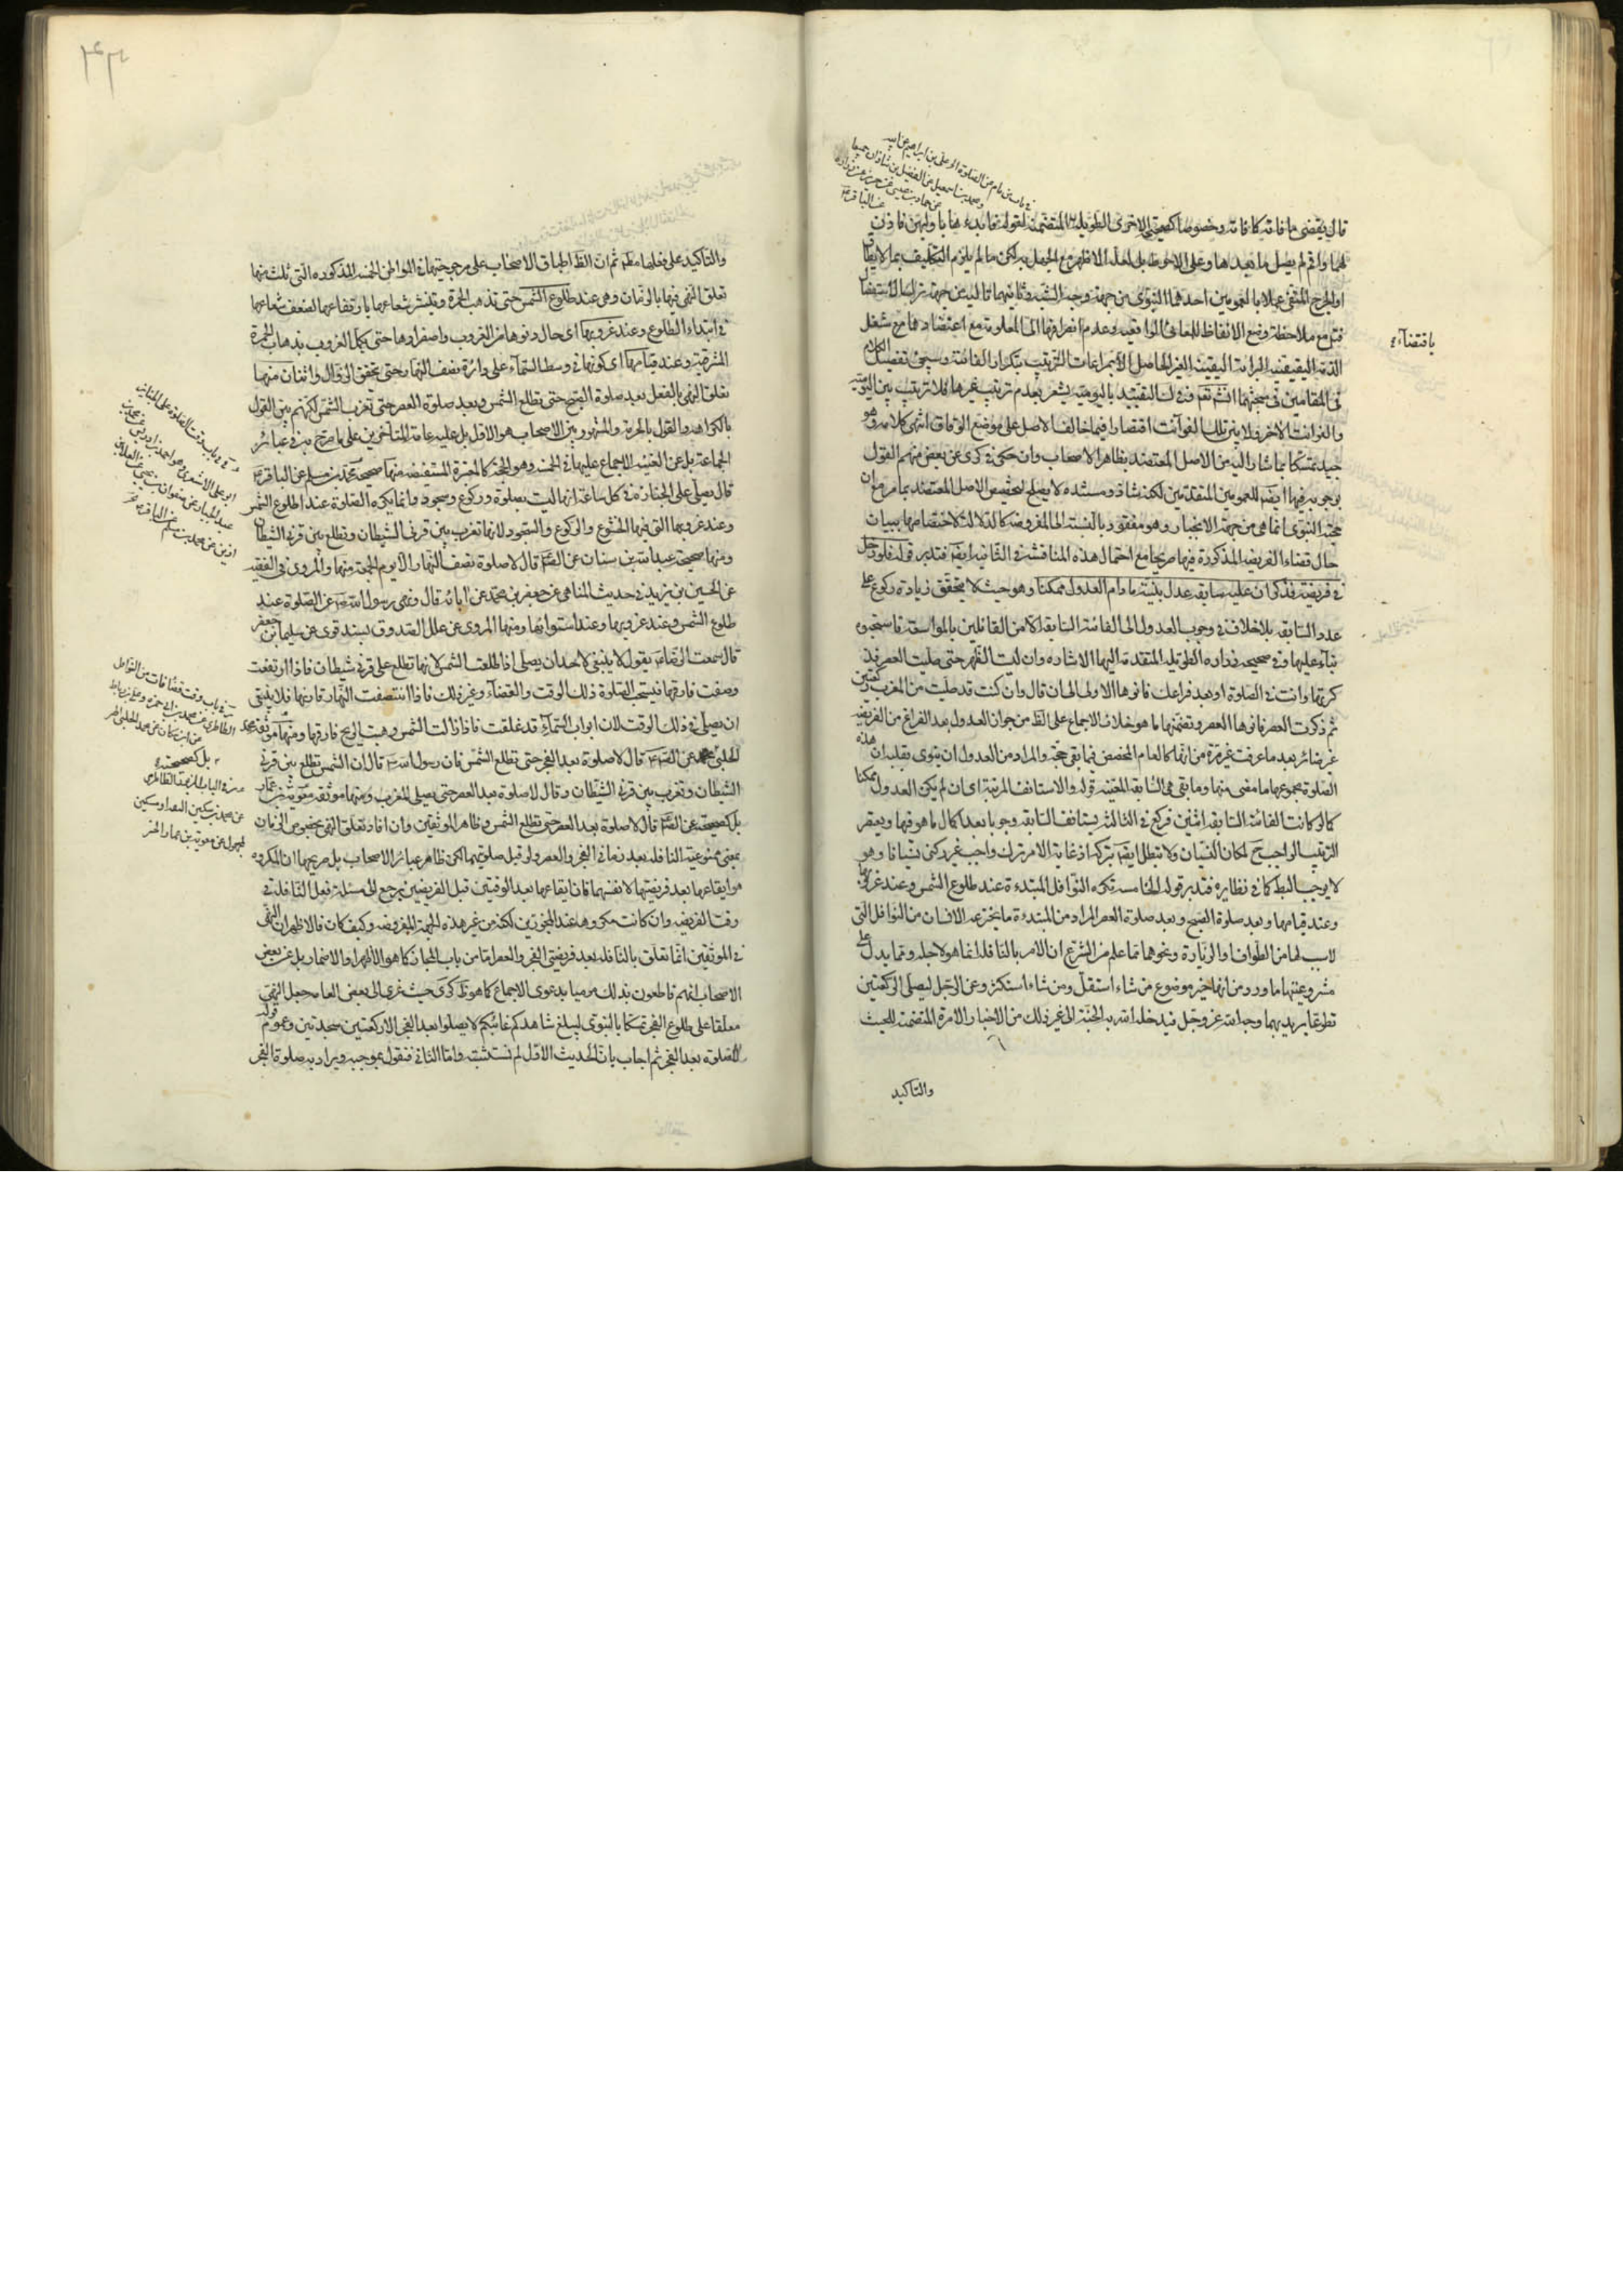 في باب من نام عن الصلوة الخ علي بن ابراهيم عن ابيه
ومحمد بن اسمعيل عن الفضل بن شاذان جميعا
عن حماد بن عيسى عن حريز عن زرارة
عن الباقر ع
قال يقضي ما فاته كما فاته وخصوصا كصحيحة الاخرى الطويلة المتضمنة لقوله فابدء بأوليهن فاذن
لها واقم ثم صل ما بعدها وعلى الاحوط بل لعله الاظهر مع الجهل به لكن ما لم يلزم التكليف بما لا يطاق
او الحرج المنفي عملا بالعمومين احدهما النبوي من جهة وجه الشبه وثانيهما تاليه من جهة ترك الاستفصال
فتل مع ملاحظة وضع الالفاظ للمعاني الواقعية وعدم انصرافها الى المعلومة مع اعتضادها مع شغل
باقتضاء
الذمة اليقينية البرائة اليقينية الغير الحاصل الا بمراعات الترتيب بتكرار الفائتة وسيجئ تفصيل الكلام
في المقامين في مبحثهما انشاء الله تعالى وفي التقييد باليومية يشعر بعدم ترتيب غيرها فلا ترتيب بين اليومية
والفوائت الاخر فلا يترتب تلك الفوائت اقتصارا فيما خالف الاصل على موضع الوفاق انتهى كلامه وهو
جيد تمسكا بما اشار اليه من الاصل المعتضد بظاهر الاصحاب وان حكى في كرى عن بعض منهم القول
بوجوبه فيها ايضا للعمومين المتقدمين لكنه شاذ ومستنده لا يصلح لتخصيص الاصل المعتضد بما مر مع ان
حجية النبوي انما هي من جهة الانجبار وهو مفقود بالنسبة الى المفروضة كالدلالة لاختصاصها ببيان
حال قضاء الفريضة المذكورة فيها صريحا مع احتمال هذه المناقشة في الثانية ايضا فتدبر قوله فلو دخل
في فريضة فذكر ان عليه سابقة عدل بنيته ما دام العدول ممكنا وهو حيث لا يتحقق زيادة ركوع على
عدد السابقة بلا خلاف في وجوب العدول الى الفائتة السابقة الا من القائلين بالمواسعة فاستحبوه
بناء عليها وفي صحيحة زرارة الطويلة المتقدمة اليها الاشارة وان نسيت الظهر حتى صليت العصر فذ
كرتها وانت في الصلوة او بعد فراغك فانوها الاولى الى ان قال وان كنت قد صليت من المغرب ركعتين
ثم ذكرت العصر فانوها العصر وتضمنها ما هو خلاف الاجماع على الظ من جواز العدول بعد الفراغ من الفريضة
غير ضائر بعد ما عرفت غير مرة من انها كالعام المخصص فيما بقي حجة والمراد من العدول ان ينوي بقلبه ان هذه
الصلوة مجموعها ما مضى منها وما بقي هي السابقة المعينة قوله والا استانف المرتبة اى ان لم يكن العدول ممكنا
كما لو كانت الفائتة السابقة اثنين فركع في الثالثة يستانف السابقة وجوبا بعد اكمال ما هو فيها ويغتفر
الترتيب الواجب ح لمكان النسيان ولا تبطل ايضا بتركه اذ غاية الامر ترك واجب غير ركني نسيانا وهو
لا يوجب البطلان كما في نظايره فتدبر قوله الخامسة تكره النوافل المبتدءة عند طلوع الشمس وعند غروبها
وعند قيامها وبعد صلوة الصبح وبعد صلوة العصر المراد من المبتدءة ما يخترعه الانسان من النوافل التي
لا سبب لها من الطواف والزيارة ونحوهما مما علم من الشرع ان الامر بالنافلة انما هو لاجله ومما يدل على
مشروعيتها ما ورد من انها خير موضوع من شاء استقل ومن شاء استكثر وعن الرجل ليصلى الركعتين
تطوعا يريد بهما وجه الله عز وجل فيدخله الله به الجنة الى غير ذلك من الاخبار الامرة المتضمنة للحث
والتاكيد
والتاكيد على فعلها مطلقا ثم ان الظ اطباق الاصحاب على مرجوحيتها في المواطن الخمسة المذكورة التي ثلث منها
تعلق النهي فيها بالزمان وهي عند طلوع الشمس حتى تذهب الحمرة وينشر شعاعها بارتفاعها لضعف شعاعها
في ابتداء الطلوع وعند غروبها اى حال دنوها من الغروب واصفرارها حتى يكمل الغروب بذهاب الحمرة
المشرقية وعند قيامها اى كونها في وسط السماء على دائرة نصف النهار حتى يتحقق الزوال واثنان منها
تعلق النهي بالفعل بعد صلوة الصبح حتى تطلع الشمس وبعد صلوة العصر حتى تغرب الشمس لكنهم بين القول
بالكراهة والقول بالحرمة والمشهور بين الاصحاب هو الاول بل عليه عامة المتأخرين على ما صرح به في عبائر
الجماعة بل عن الغنية الاجماع عليها في الخمسة وهو الحجة كالمعتبرة المستفيضة منها صحيحة محمد بن مسلم عن الباقر ع
قال يصلى على الجنازة في كل ساعة انها ليست بصلوة وركوع وسجود وانما يكره الصلوة عند اطلوع الشمس
وعند غروبها التي فيها الخشوع والركوع والسجود لانها تغرب بين قرنى الشيطان وتطلع بين قرني الشيطان
ومنها صحيحة عبدالله بن سنان عن الص ع قال لا صلوة نصف النهار الا يوم الجمعة ومنها المروى في الفقيه
عن الحسين بن يزيد في حديث المناهي عن جعفر بن محمد عن ابائه قال ونهى رسول الله ص عن الصلوة عند
طلوع الشمس وعند غروبها وعند استوائها ومنها المروى عن علل الصدوق بسند قوى عن سليمان بن جعفر
قال سمعت الرضا ع يقول لا ينبغي لاحد ان يصلى اذا طلعت الشمس لانها تطلع على قرني شيطان فاذا ارتفعت
وصفت فارقها فيستحب الصلوة ذلك الوقت والقضاء وغير ذلك فاذا انتصفت النهار قارنها فلا ينبغي
ان يصلى في ذلك الوقت لان ابواب السماء قد غلقت فاذا زالت الشمس وهبت الريح فارقها ومنها موثقة محمد
الحلبي عن الص ع قال لا صلوة بعد الفجر حتى تطلع الشمس فان رسول الله ص قال ان الشمس تطلع بين قرني
الشيطان وتغرب بين قرني الشيطان وقال لا صلوة بعد العصر حتى يصلى المغرب ومنها موثقة معوية بن عمار
بل كصحيحته عن الص ع قال لا صلوة بعد العصر حتى تطلع الشمس وظاهر الموثقين وان افاد تعلق النهي بخصوص الزمان
بمعنى ممنوعية النافلة بعد زماني الفجر والعصر ولو قبل صلوتيهما لكن ظاهر عبائر الاصحاب بل صريحها ان المكروه
هو ايقاعها بعد فريضتيهما لا نفسهما فان ايقاعها بعد الوقتين قبل الفريضين يرجع الى مسئلة فعل النافلة في
وقت الفريضة وان كانت مكروها عند المجوزين لكنه من غير هذه الجهة المفروضة وكيف كان فالاظهر ان النهي
في الموثقين انما تعلق بالنافلة بعد فريضتي الفجر والعصر اما من باب المجاز كما هو الاظهر او الاضمار بل عن بعض
الاصحاب انهم قاطعون بذلك مرميا بدعوى الاجماع كما هو ظ كرى حيث عزى الى بعض العامة جعل النهي
معلقا على طلوع الفجر تمسكا بالنبوى ليبلغ شاهدكم غائبكم لا يصلوا بعد الفجر الا ركعتين سجدتين وعموم قوله
لا صلوة بعد الفجر ثم اجاب بان الحديث الاول لم نستثبته واما الثاني فنقول بموجبه ويراد به صلوة الفجر
في باب وقت الصلوة على الجنائز
ابو على الاشعري هو احمد بن ادريس عن محمد بن
عبد الجبار عن صفوان بن يحيى عن العلا بن
رزين عن محمد بن مسلم عن الباقر ع
في باب وقت قضا ما فات من النوافل
الطاطري عن محمد بن ابي حمزة وعلى بن رباط
عن ابن مسكان عن محمد الحلبي الخ
بل كصحيحته
عن محمد بن سكين
عن معوية بن عمار الخ